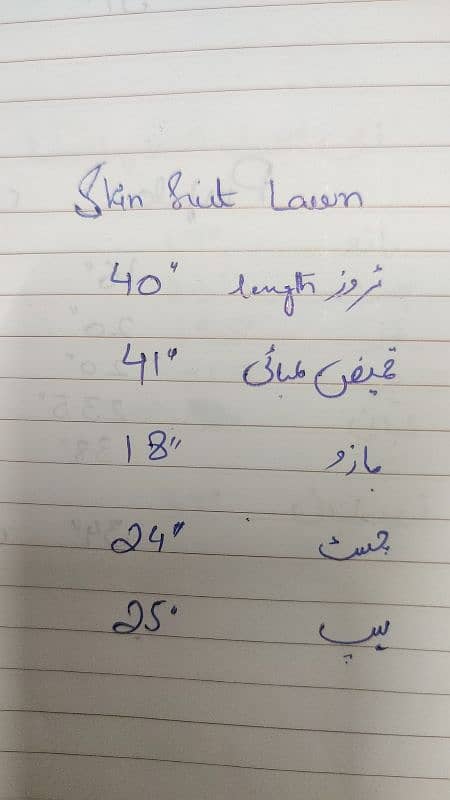 Skin Suit Lawn
ٹروزر length 40"
قمیض لمبائی 41"
بازو 18"
چسٹ 24"
ہپ 25"